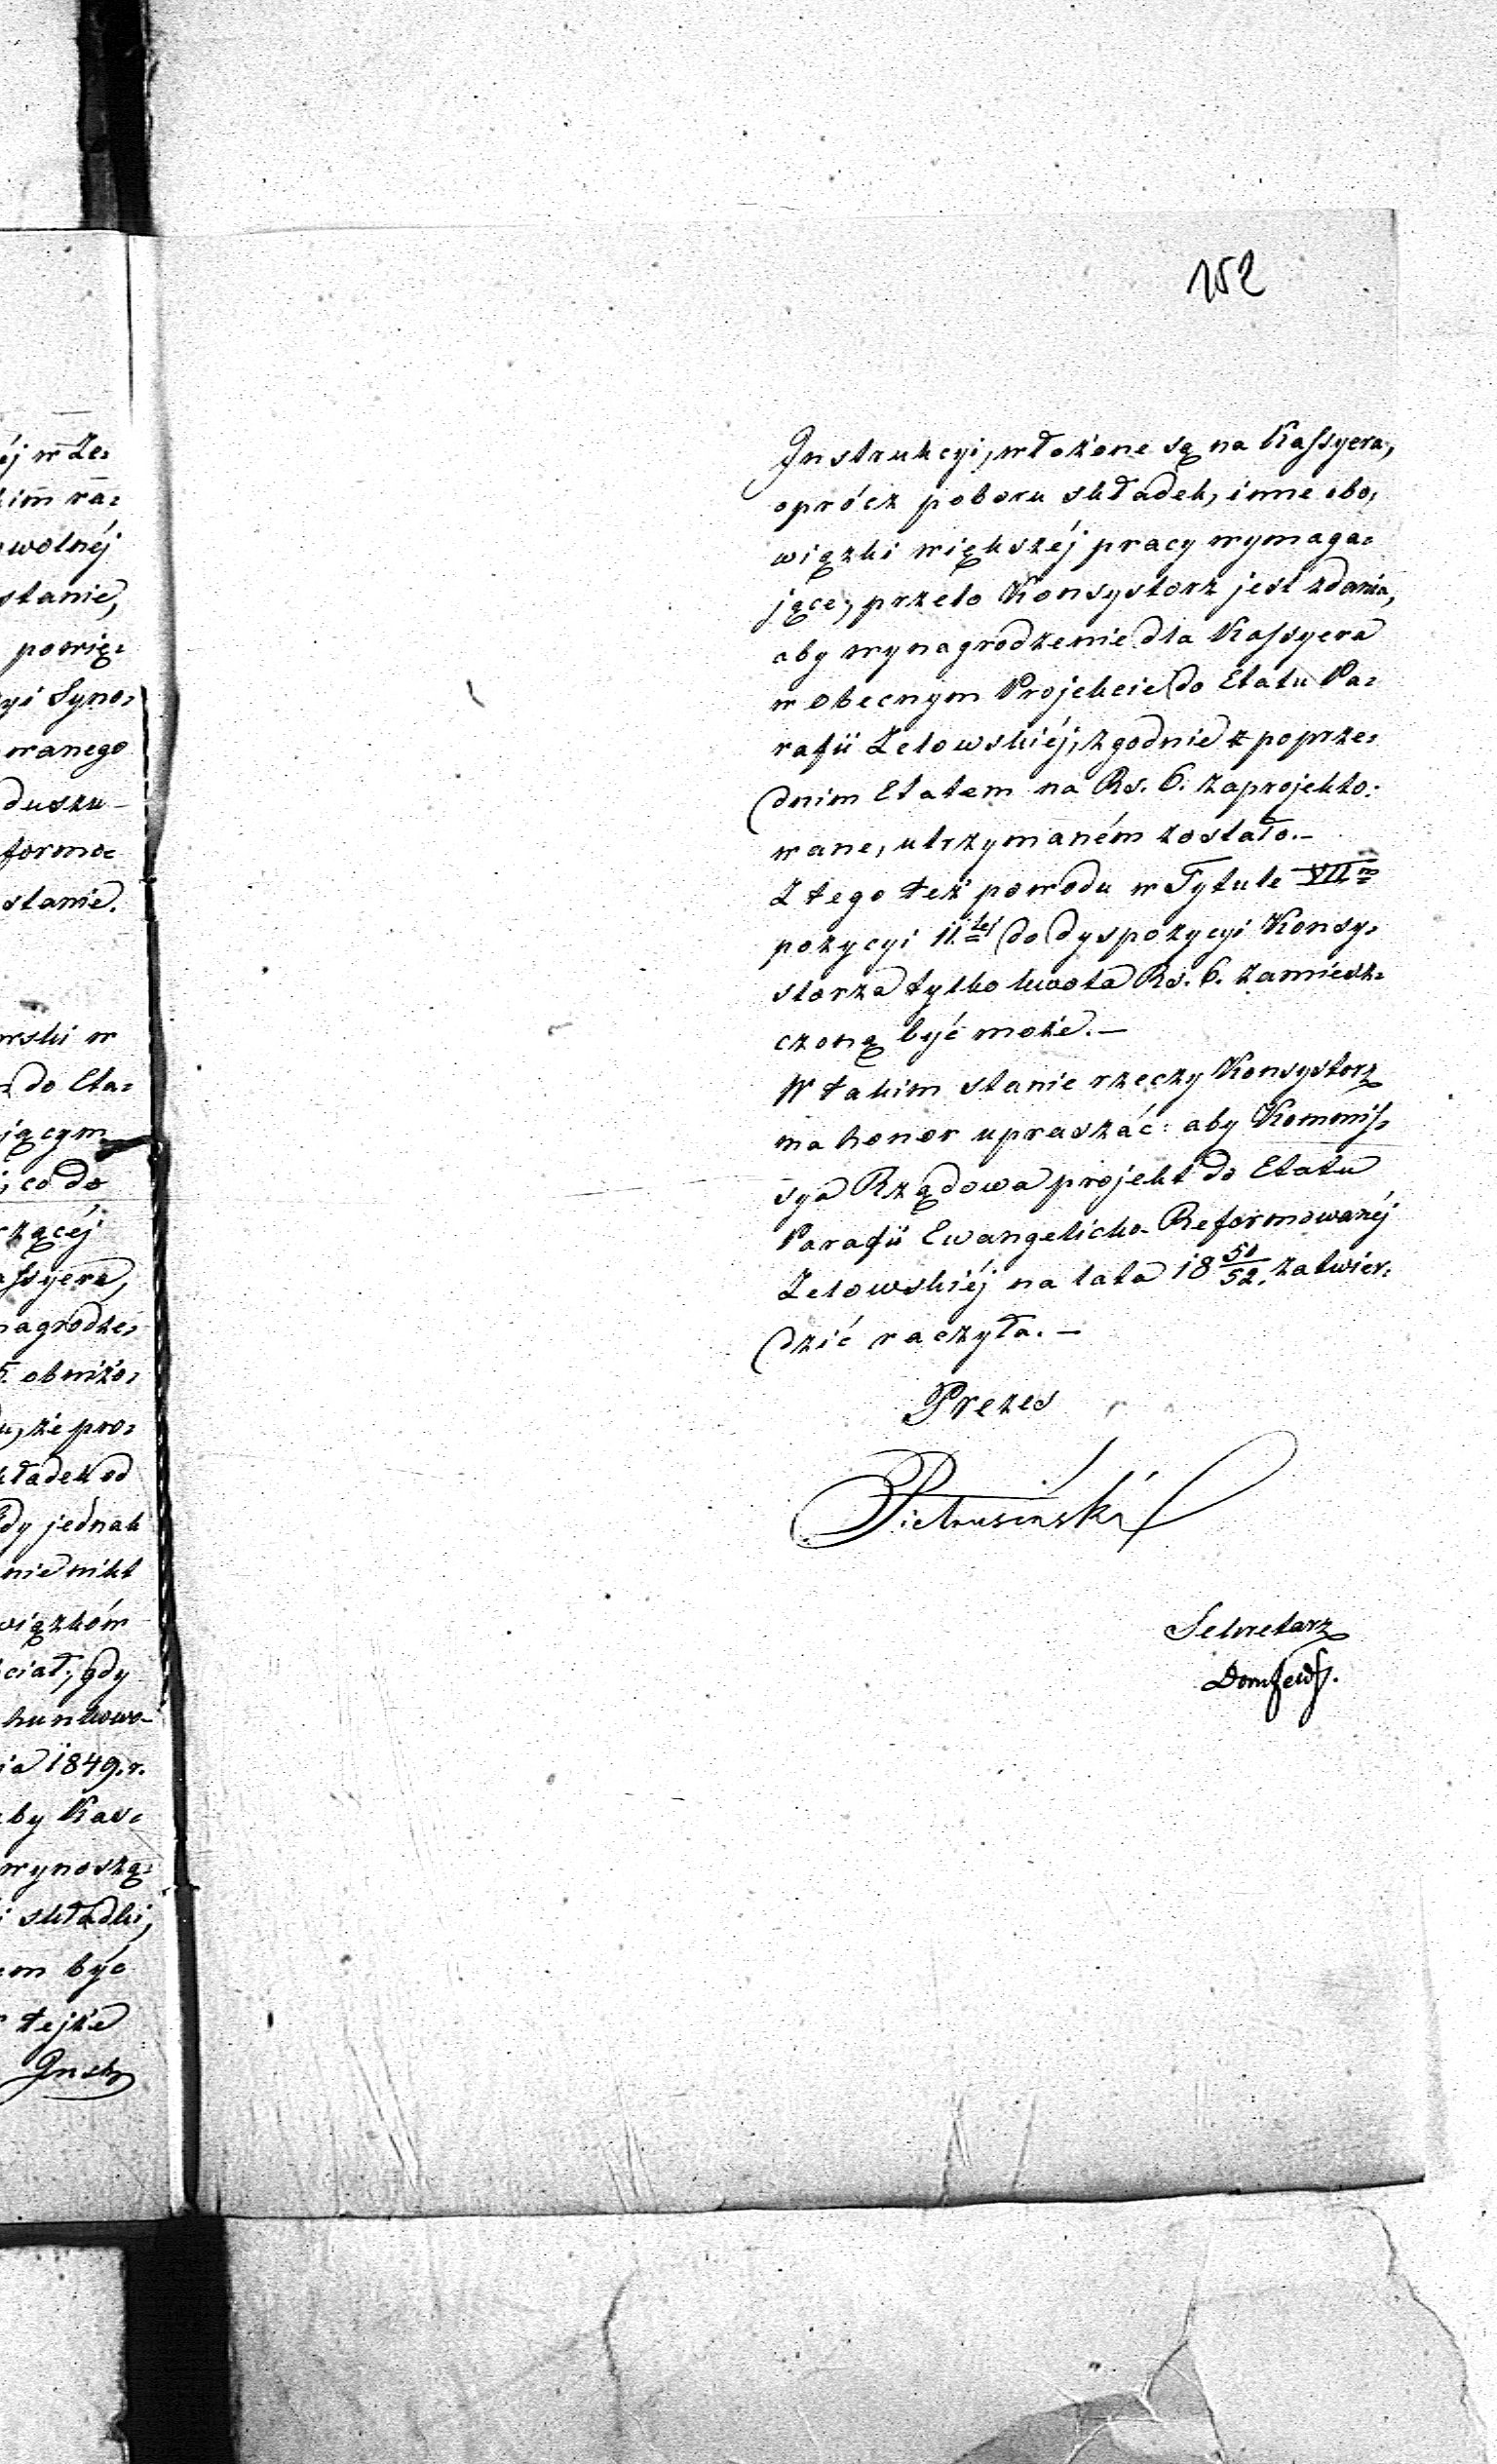 152
Instrukcyi, włożone są na Kassyera,
oprócz poboru składek, inne obo=
wiązki większéj pracy wymaga=
jące, przeto Konsystorz jest zdania,
aby wynagrodzenie dla Kassyera
w obecnym Projekcie do Etatu Pa=
rafii Zelowskiéj, zgodnie z poprze=
dnim Etatem na Rs. 6. zaprojekto=
wane, utrzymaném zostało.—
Z tego też powodu w Tytule VII
pozycyi 11.tej do dyspozycyi Konsy=
storza tylko kwota Rs. 6. zamiesz=
czoną być może.—
W takim stanie rzeczy Konsystorz
ma honor upraszać: aby Kommis=
sya Rządowa projekt do Etatu
Parafii Ewangelicko-Reformowanéj
Zelowskiéj na lata 18 50/52. zatwier=
dzić raczyła.—
Prezes
Pietrusiński
Sekretarz
éj w Ze=
kim ra=
wolnéj
stanie,
powię=
yi Syno=
wanego
duszu
formo=
stanie.
wski w
do Eta=
jącym
; co do
rzącéj
assyera,
nagrodze=
obniżo=
u, że pro=
kładek od
dy jednak
nie nikt
wiązków
ciał; gdy
hunkowo-
ia 1849. r.
aby Kas=
wynoszą=
i składki,
em być
tejże
Instr